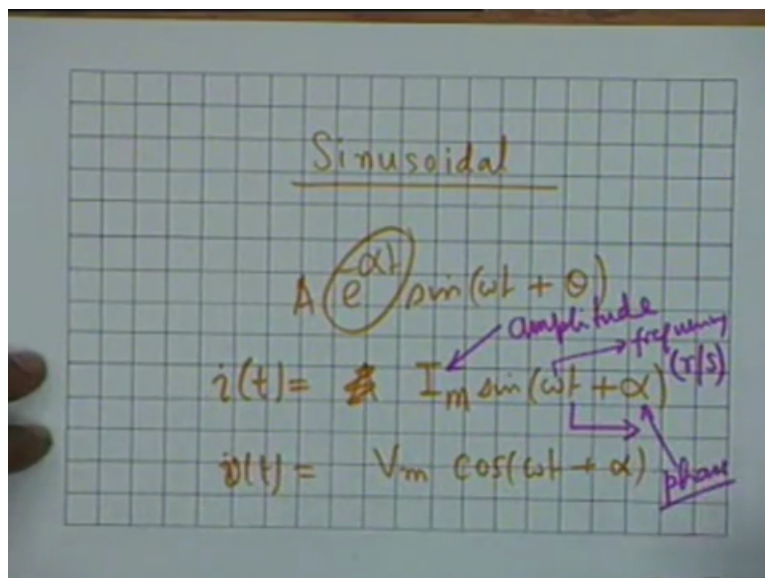 Sinusoidal
A e^-αt sin(ωt + θ)
amplitude
frequency
i(t) = I_m sin(ωt + α) (r/s)
v(t) = V_m cos(ωt + α)
phase